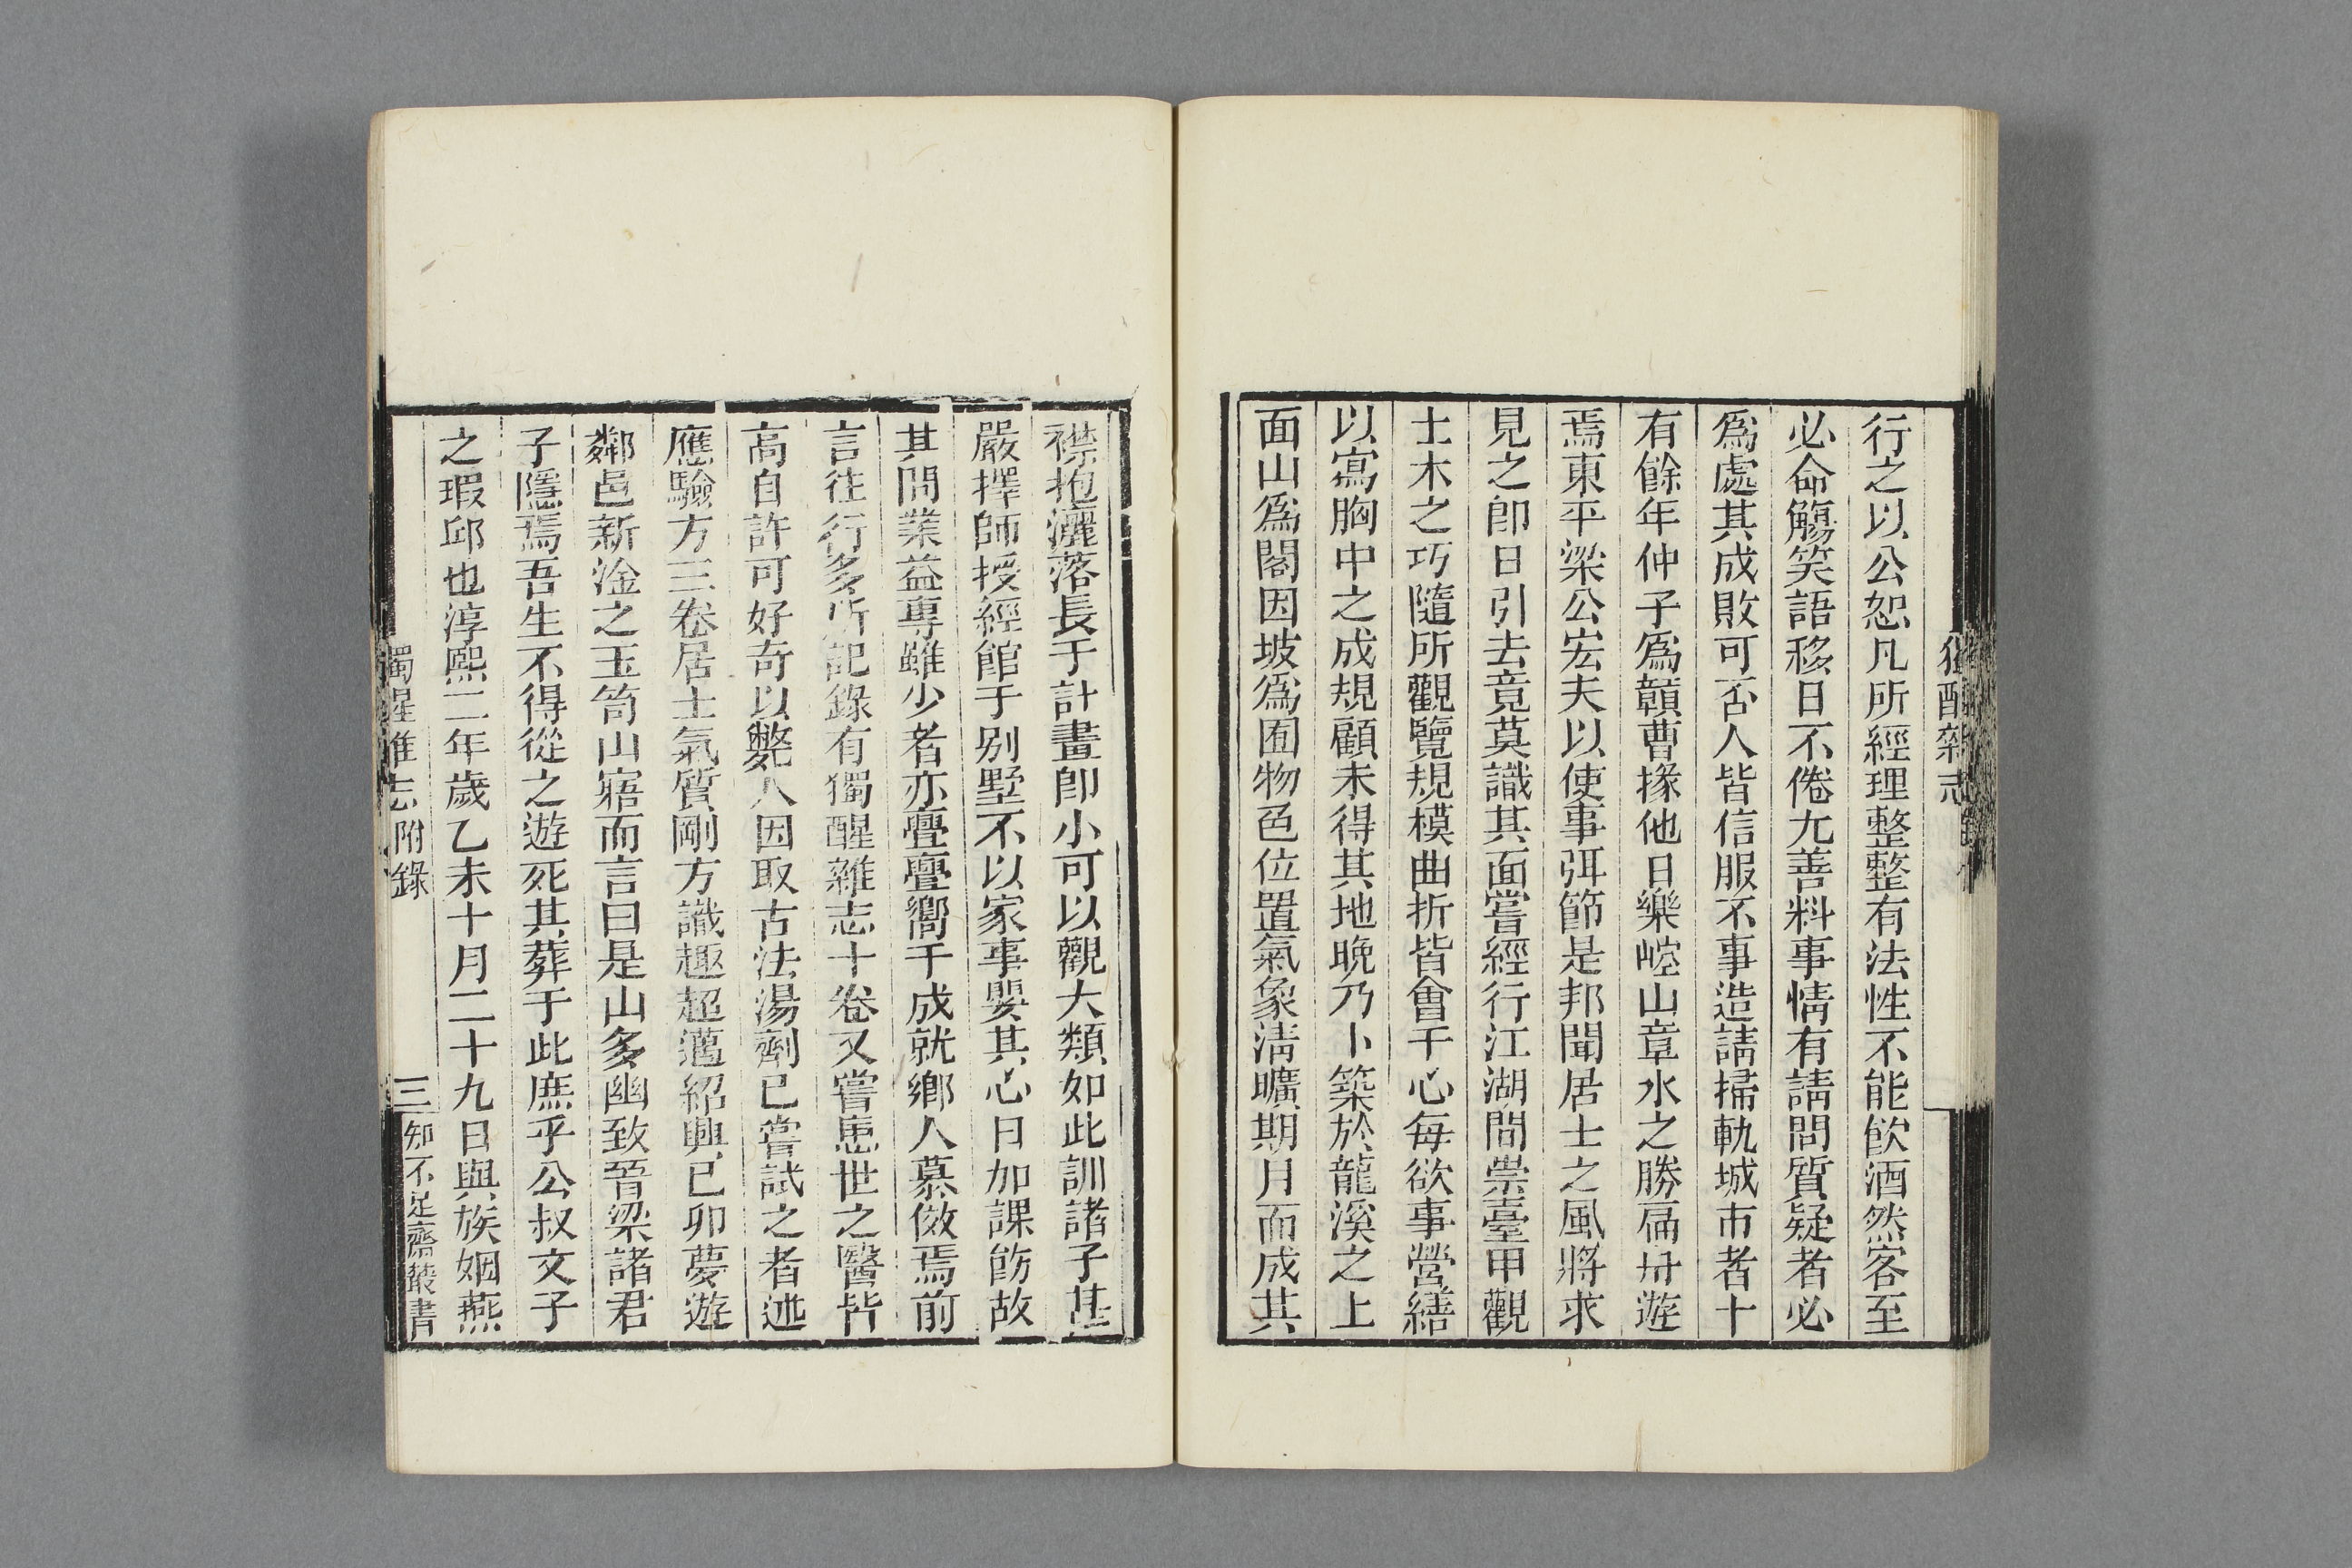 行之以公恕凡所經理整整有法性不能飮酒然客至
必命觴笑語移日不倦尤善料事情有請問質疑者必
爲處其成敗可否人皆信服不事造請掃軌城市者十
有餘年仲子爲贛曹掾他日樂崆山章水之勝扁舟遊
焉東平梁公宏夫以使事弭節是邦聞居士之風將求
見之卽日引去竟莫識其面嘗經行江湖間崇臺甲觀
土木之巧隨所觀覽規模曲折皆會于心每欲事營繕
以寫胸中之成規顧未得其地晚乃卜築於龍溪之上
面山爲閣因坡爲囿物色位置氣象淸曠期月而成其
襟抱灑落長于計畫卽小可以觀大類如此訓諸子甚
嚴擇師授經館于别墅不以家事嬰其心日加課飭故
其問業益專雖少者亦亹亹嚮于成就鄉人慕倣焉前
言往行多所記錄有獨醒雜志十卷又嘗患世之醫皆
高自許可好奇以斃人因取古法湯劑已嘗試之者述
應驗方三卷居士氣質剛方識趣超邁紹興已卯夢遊
鄰邑新淦之玉笥山寤而言曰是山多幽致晉梁諸君
子隱焉吾生不得從之遊死其葬于此庶乎公叔文子
之瑕邱也淳熙二年歲乙未十月二十九日與族姻燕
獨醒雜志附錄
三
知不足齋叢書